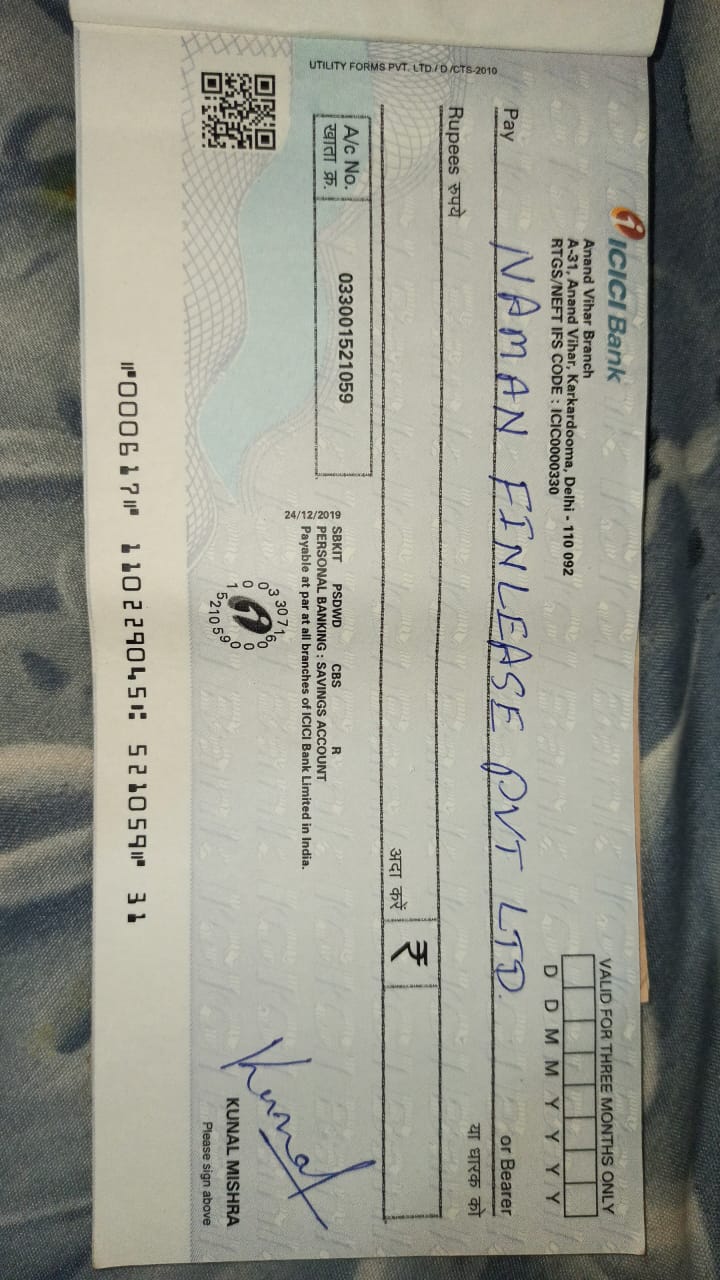 UTILITY FORMS PVT. LTD./ D /CTS-2010
ICICI Bank
Anand Vihar Branch
A-31, Anand Vihar, Karkardooma, Delhi - 110 092
RTGS/NEFT IFS CODE : ICIC0000330
VALID FOR THREE MONTHS ONLY
D D M M Y Y Y Y
Pay NAMAN FINLEASE PVT LTD. or Bearer
या धारक को
Rupees रुपये
अदा करें ₹
A/c No.
खाता क्र.
033001521059
24/12/2019
SBKIT PSDWD CBS R
PERSONAL BANKING : SAVINGS ACCOUNT
Payable at par at all branches of ICICI Bank Limited in India.
Kunal
KUNAL MISHRA
Please sign above
⑈000617⑈ 110229045⑆ 521059⑈ 31